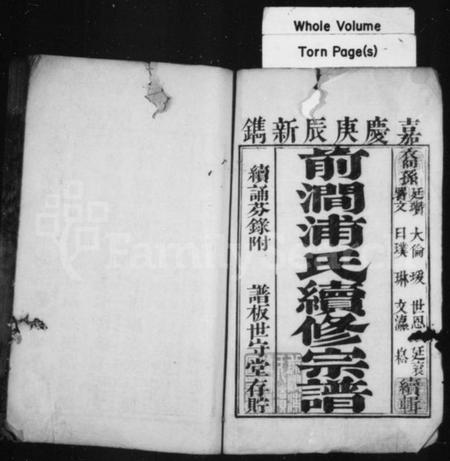 Whole Volume
Torn Page(s)
嘉慶庚辰新鐫
裔孫
廷瓚 大倫 璦 世恩 廷袞
文 日璞 琳 文瀛 楁 續輯
前澗浦氏續修宗譜
續誦芬錄附 譜板世守堂存貯
FamilySearch